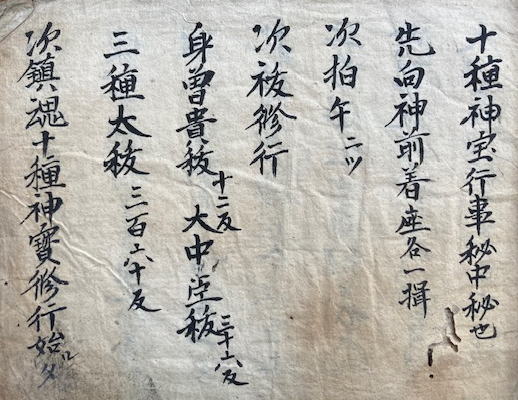 十種神宝行事秘中秘也
先向神前着座各一揖
次拍手二ツ
次祓修行
身曽貴祓十二反 大中臣祓三十六反
三種太祓三百六十反
次鎮魂十種神寶修行始